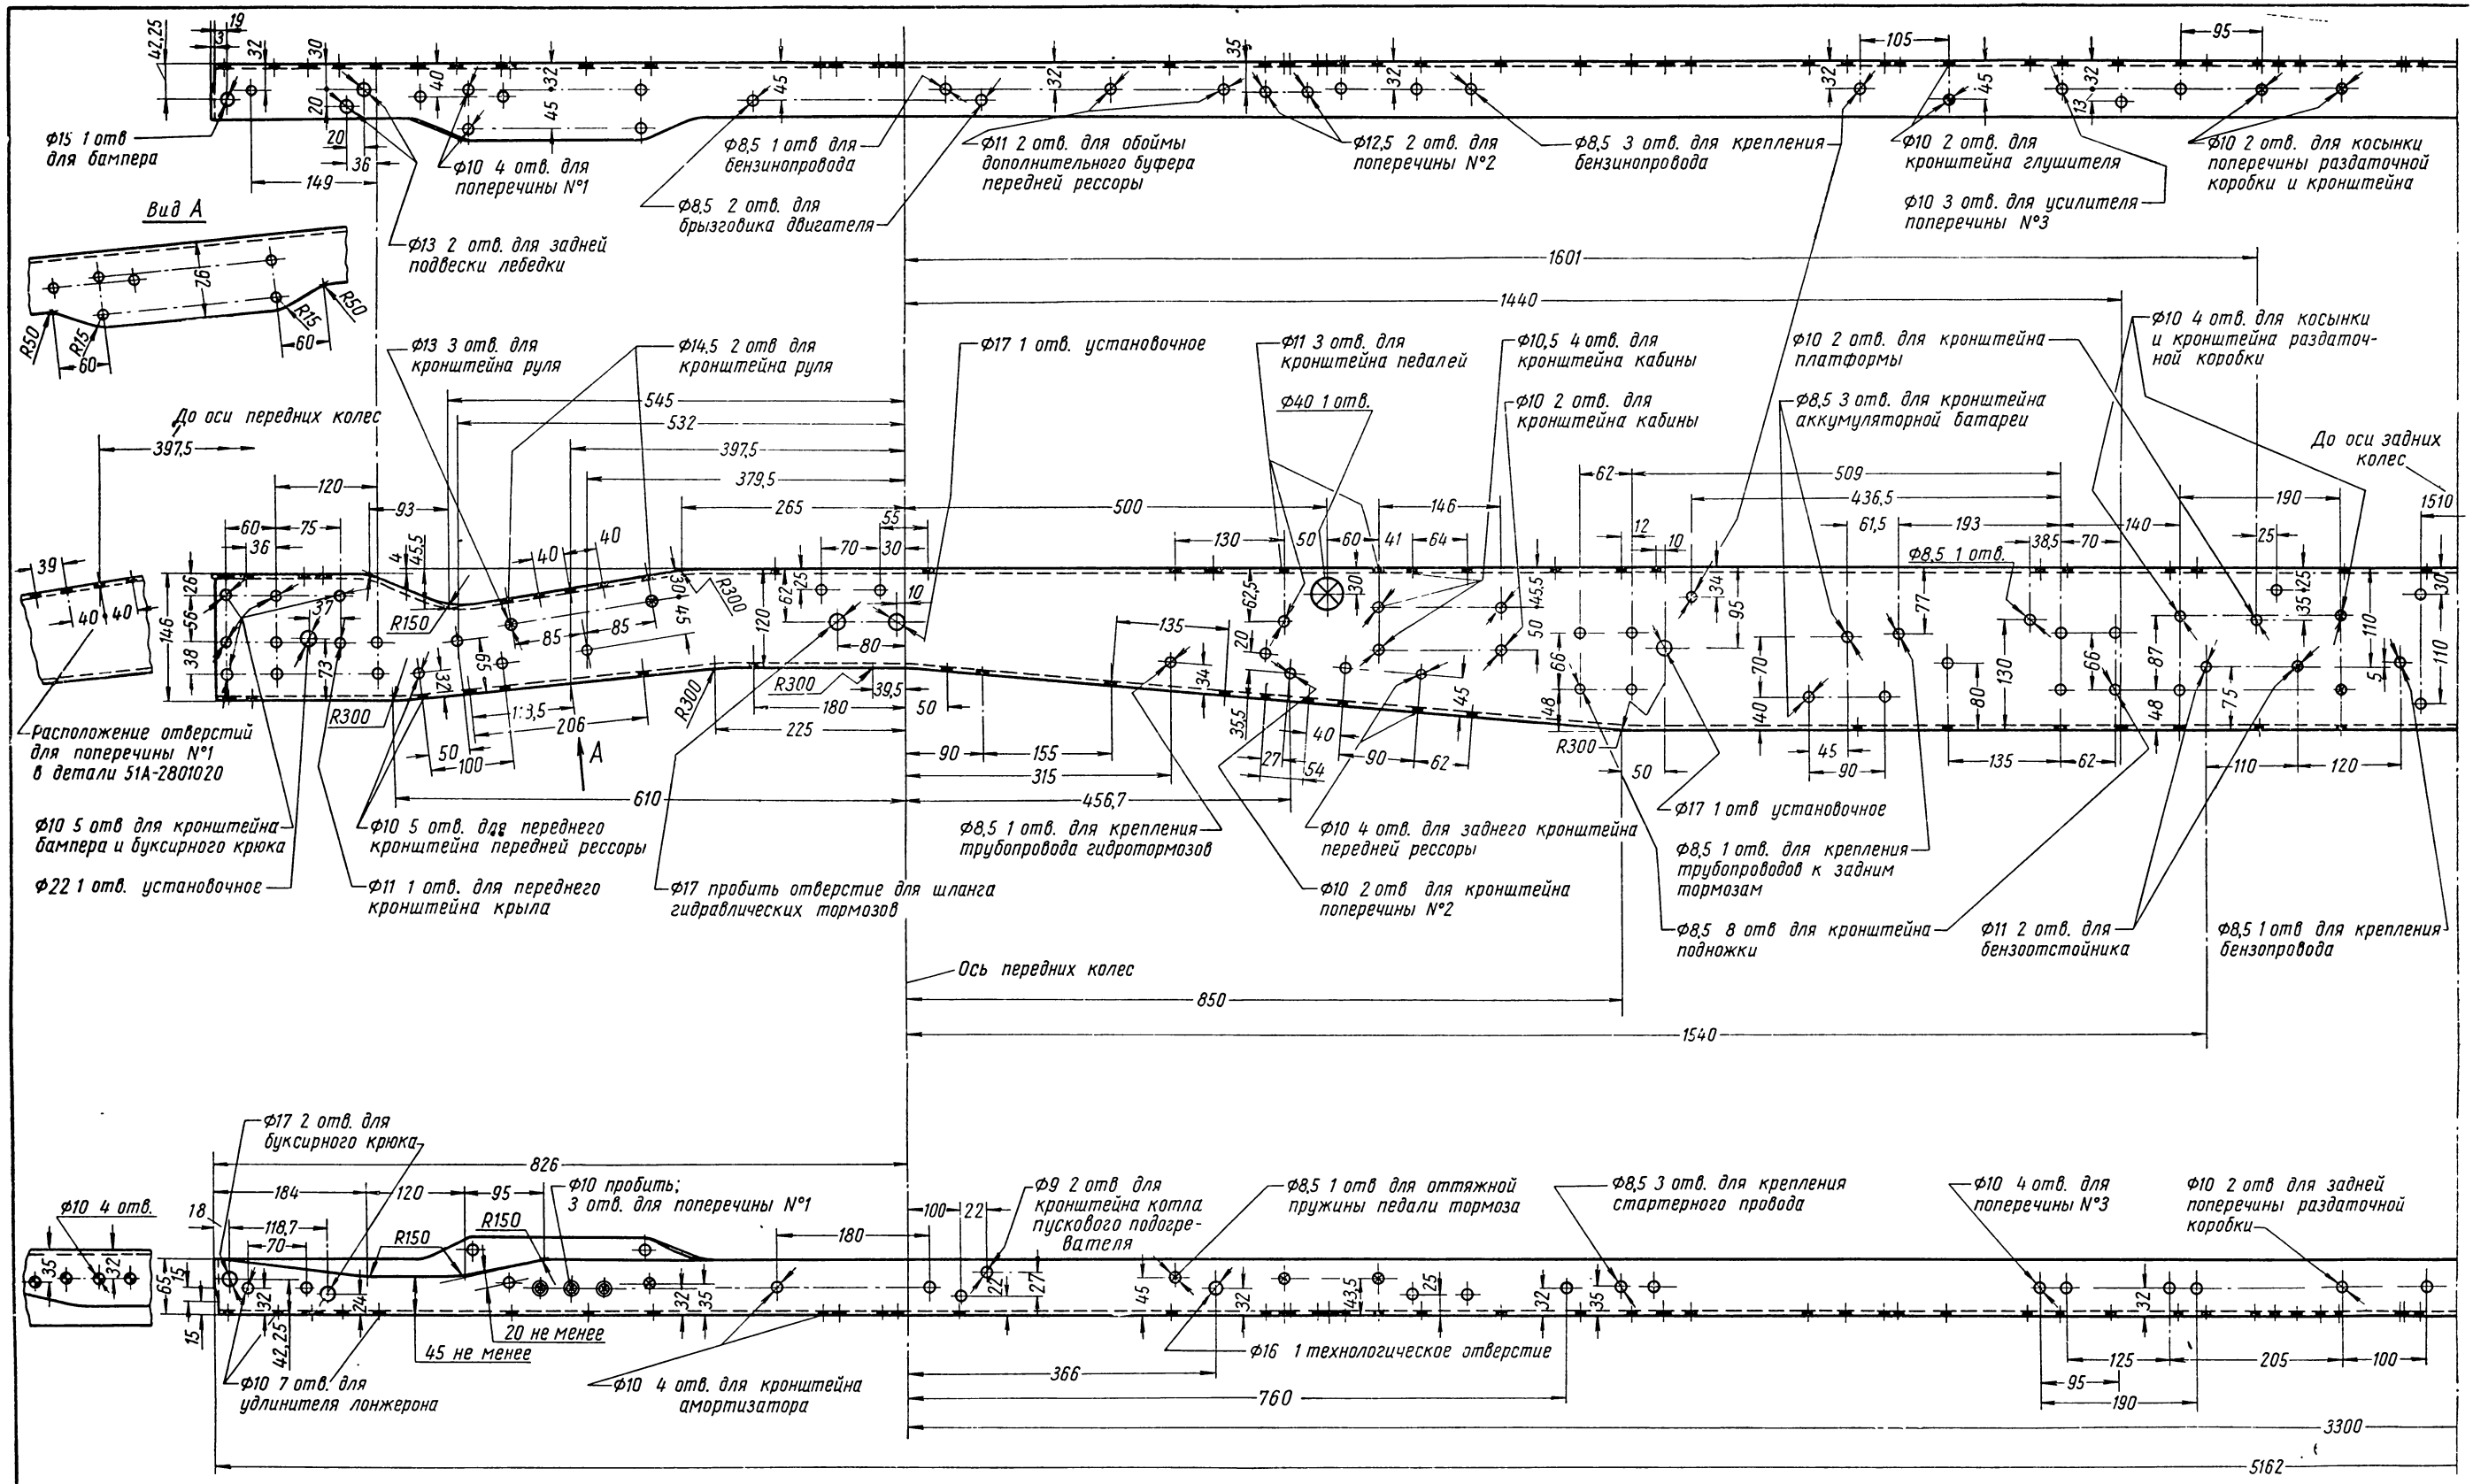 42,25
19
3
32
30
40
32
45
45
32
35
32
32
105
45
32
13
95
20
20
36
149
Ф15 1 отв
для бампера
Ф10 4 отв. для
поперечины №1
Ф8,5 1 отв для
бензинопровода
Ф8,5 2 отв. для
брызговика двигателя
Ф11 2 отв. для обоймы
дополнительного буфера
передней рессоры
Ф12,5 2 отв. для
поперечины №2
Ф8,5 3 отв. для крепления
бензинопровода
Ф10 2 отв. для
кронштейна глушителя
Ф10 3 отв. для усилителя
поперечины №3
Ф10 2 отв. для косынки
поперечины раздаточной
коробки и кронштейна
Ф13 2 отв. для задней
подвески лебедки
Вид А
97
R50
R15
60
R15
R50
60
1601
1440
Ф13 3 отв. для
кронштейна руля
Ф14,5 2 отв для
кронштейна руля
Ф17 1 отв. установочное
Ф11 3 отв. для
кронштейна педалей
Ф40 1 отв.
Ф10,5 4 отв. для
кронштейна кабины
Ф10 2 отв. для
кронштейна кабины
Ф10 2 отв. для кронштейна
платформы
Ф8,5 3 отв. для кронштейна
аккумуляторной батареи
Ф10 4 отв. для косынки
и кронштейна раздаточ-
ной коробки
До оси передних колес
397,5
До оси задних
колес
1510
545
532
397,5
379,5
265
500
120
93
60
75
36
39
40
40
26
56
38
146
4
45,5
37
73
R150
40
40
85
85
30
45
R300
120
62
25
70
30
55
10
80
130
50
60
41
146
64
62,5
30
20
135
34
35,5
45,5
50
45
62
509
436,5
12
10
34
95
66
48
61,5
193
140
190
Ф8,5 1 отв.
38,5
70
25
77
70
40
130
80
66
87
48
35
25
110
75
5
30
110
R300
32
65
118,5
206
50
100
А
R300
180
R300
39,5
225
50
90
155
315
27
54
40
90
62
R300
50
45
90
135
62
110
120
610
456,7
Расположение отверстий
для поперечины №1
в детали 51А-2801020
Ф10 5 отв для кронштейна
бампера и буксирного крюка
Ф22 1 отв. установочное
Ф10 5 отв. для переднего
кронштейна передней рессоры
Ф11 1 отв. для переднего
кронштейна крыла
Ф17 пробить отверстие для шланга
гидравлических тормозов
Ф8,5 1 отв. для крепления
трубопровода гидротормозов
Ф10 4 отв. для заднего кронштейна
передней рессоры
Ф10 2 отв для кронштейна
поперечины №2
Ф17 1 отв установочное
Ф8,5 1 отв. для крепления
трубопроводов к задним
тормозам
Ф8,5 8 отв для кронштейна
подножки
Ф11 2 отв. для
бензоотстойника
Ф8,5 1 отв для крепления
бензопровода
Ось передних колес
850
1540
Ф17 2 отв. для
буксирного крюка
826
184
120
95
Ф10 пробить;
3 отв. для поперечины №1
Ф10 4 отв.
18
118,7
70
R150
R150
180
100
22
Ф9 2 отв для
кронштейна котла
пускового подогре-
вателя
Ф8,5 1 отв для оттяжной
пружины педали тормоза
Ф8,5 3 отв. для крепления
стартерного провода
Ф10 4 отв. для
поперечины №3
Ф10 2 отв для задней
поперечины раздаточной
коробки
35
32
65
15
15
32
42,25
24
32
35
22
27
45
32
43,5
25
32
35
32
20 не менее
45 не менее
Ф10 7 отв. для
удлинителя лонжерона
Ф10 4 отв. для кронштейна
амортизатора
Ф16 1 технологическое отверстие
366
760
125
205
100
95
190
3300
5162